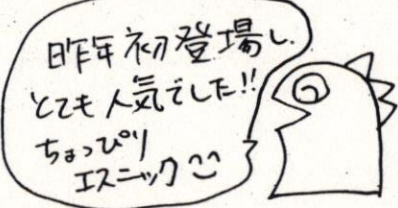 昨年初登場し、
とても人気でした!!
ちょっぴり
エスニック